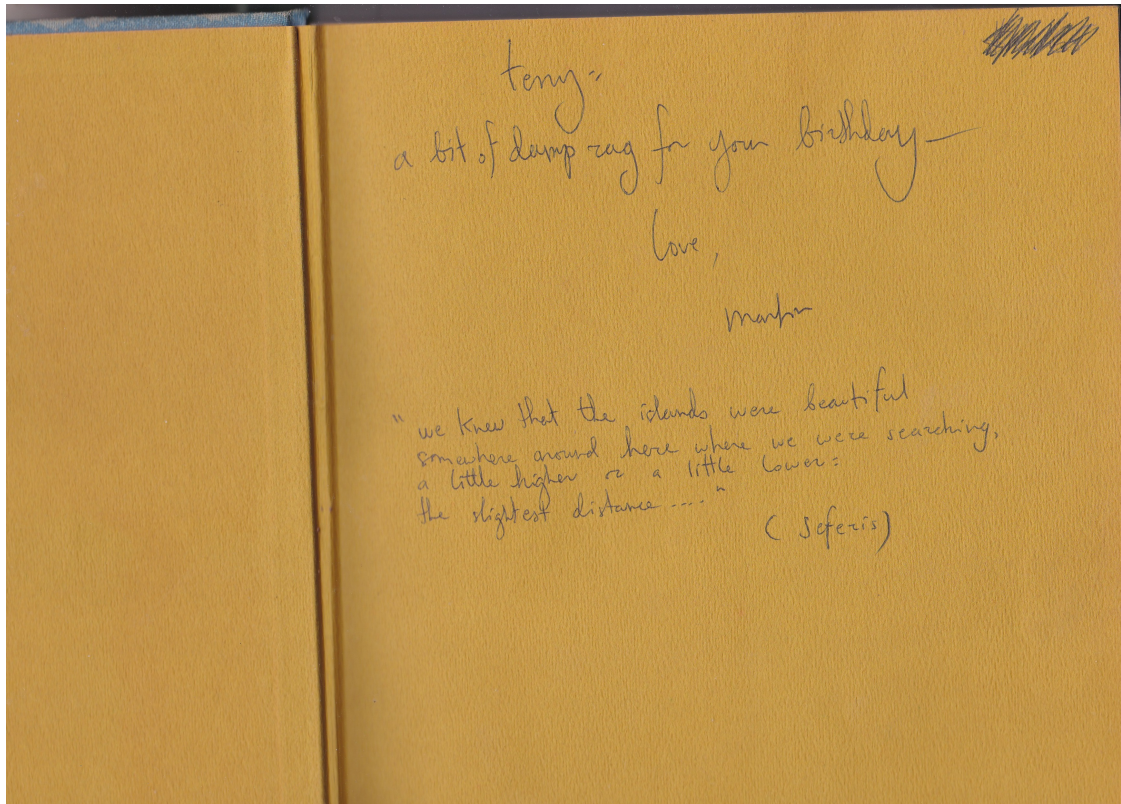 terry -
a bit of damp rag for your birthday —
love,
martin
"we knew that the islands were beautiful
somewhere around here where we were searching,
a little higher or a little lower:
the slightest distance...."
(Seferis)